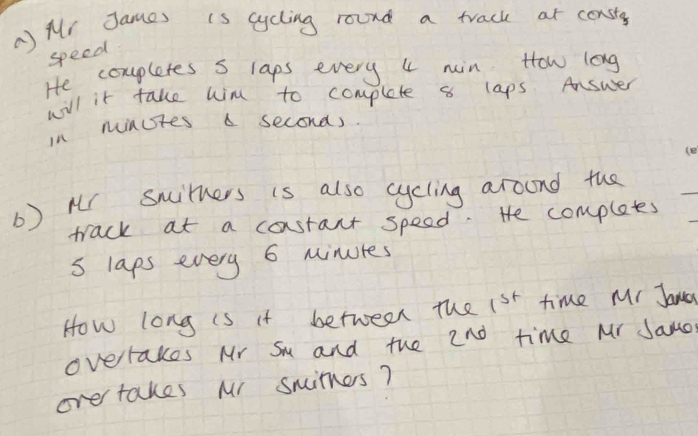 a) Mr James is cycling round a track at consta
speed.
He completes 5 laps every 4 min. How long
will it take him to complete 8 laps Answer
in minutes & seconds.
b) Mr Smithers is also cycling around the
track at a constant speed. He completes
5 laps every 6 minutes
How long is it between the 1st time Mr James
overtakes Mr Sm and the 2nd time Mr James
overtakes Mr Smithers?